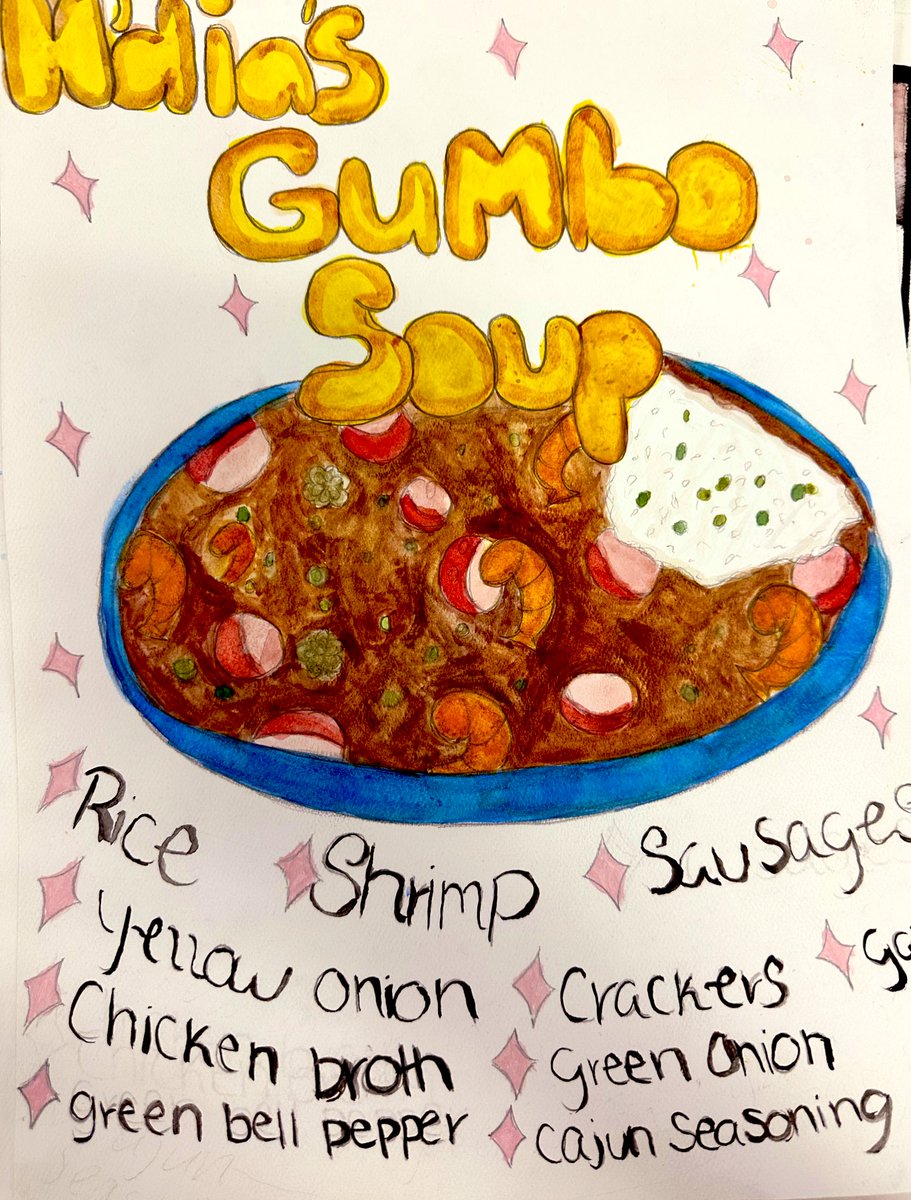 M'dia's
Gumbo
Soup
Rice
Shrimp
Sausages
Yellow onion
Crackers
Chicken broth
green onion
green bell pepper
cajun seasoning